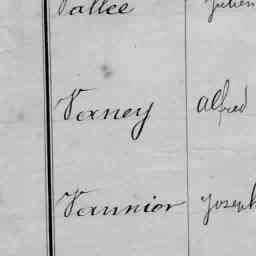 Vallée Julien
Verney Alfred
Vannier Joseph